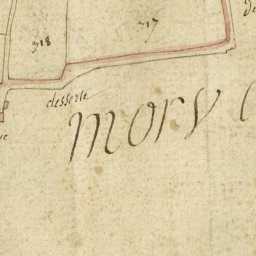 718
717
desserte
mory